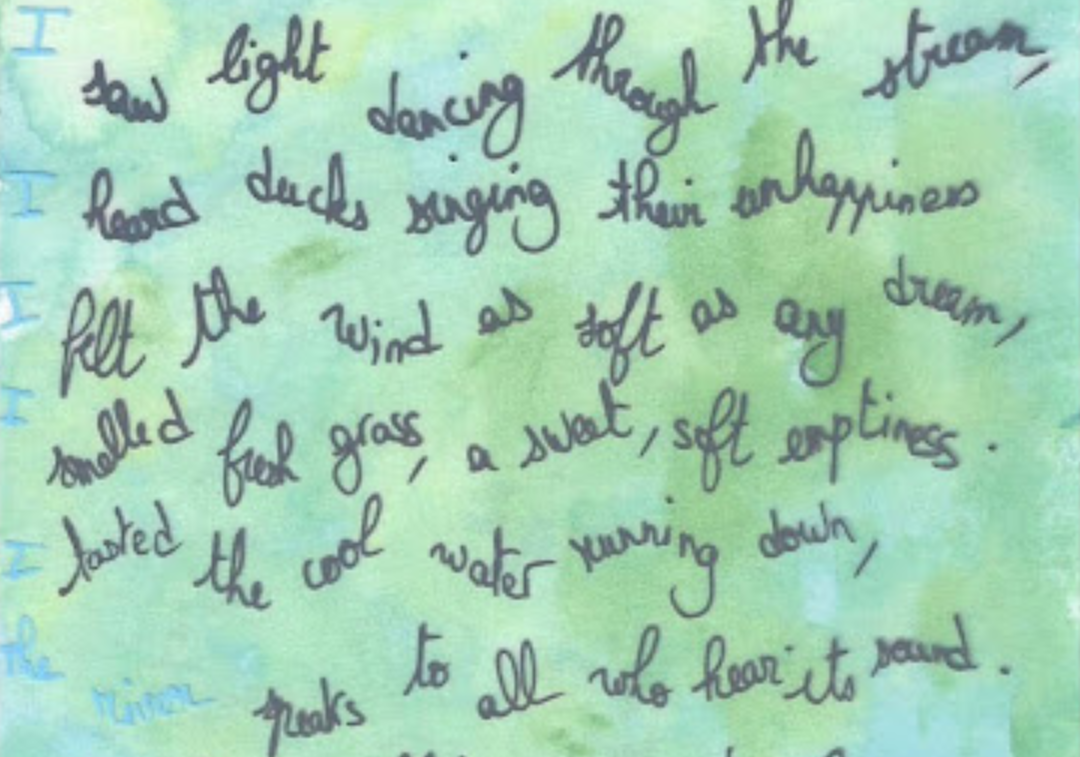 I saw light dancing through the stream,
I heard ducks singing their unhappiness
I felt the wind as soft as any dream,
I smelled fresh grass, a sweet, soft emptiness.
I tasted the cool water running down,
the river speaks to all who hear its sound.